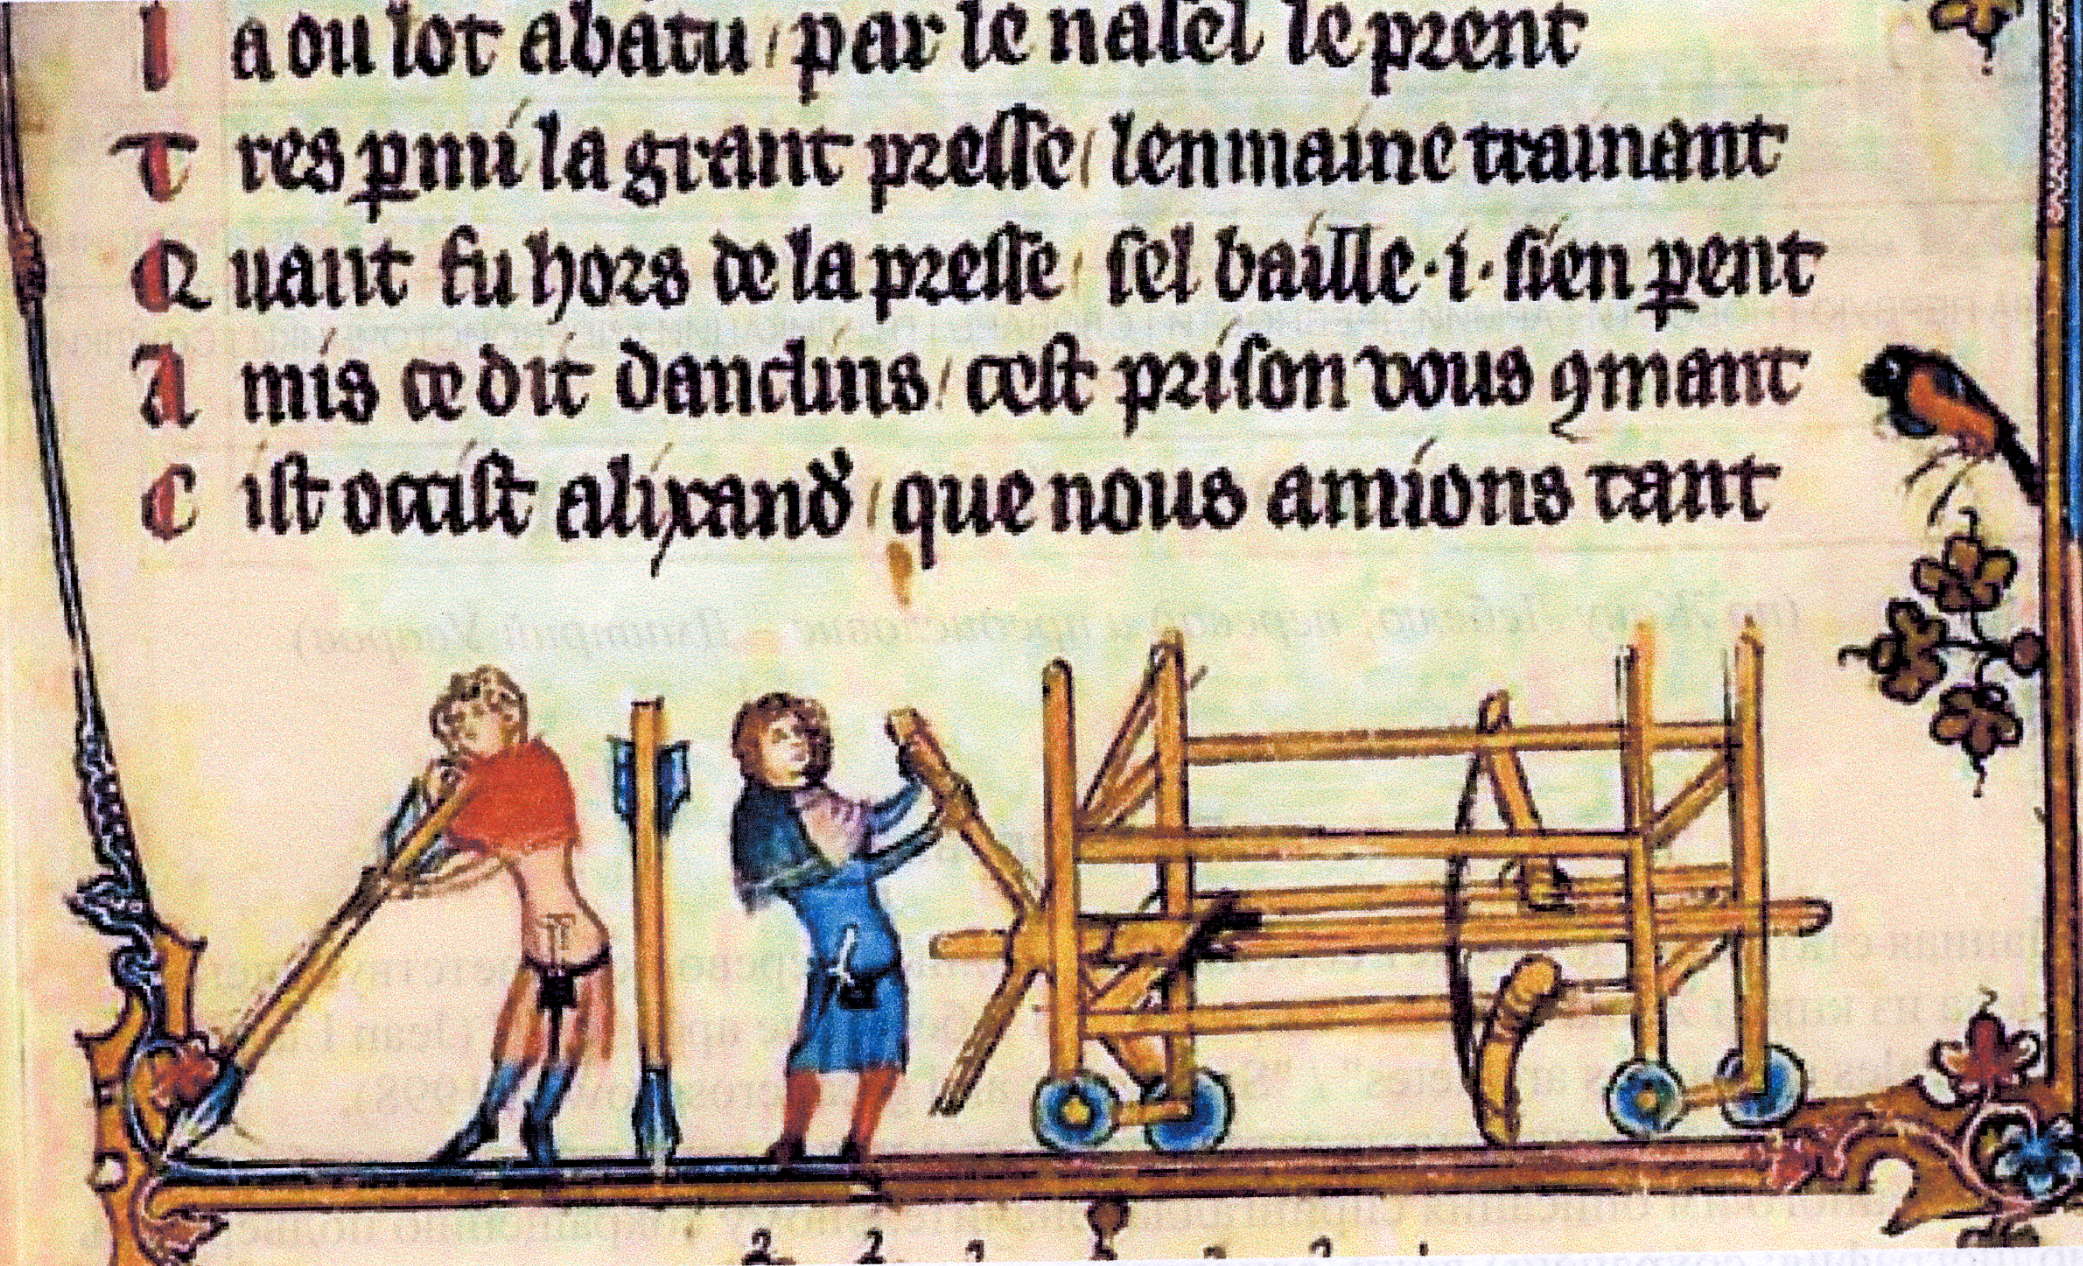 I a ou lot abatu / par le nasel le prent
T res pmi la grant presse / lenmaine trainant
Q uant fu hors de la presse / sel baille · i · sien pent
A mis ce dit danclins / cest prison vous ꝯmant
C ist occist alixandˀ / que nous amions tant